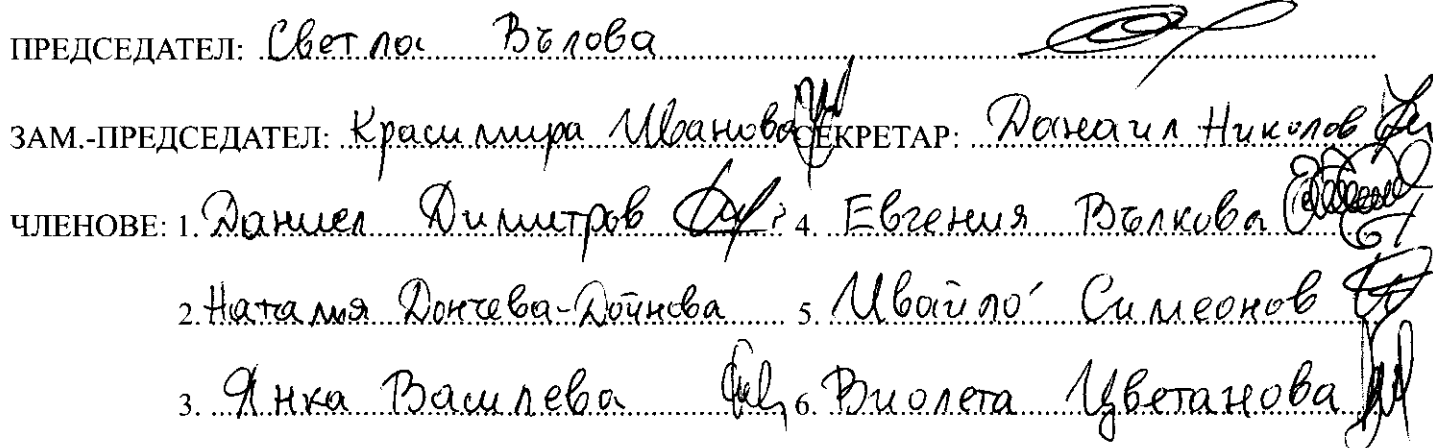 ПРЕДСЕДАТЕЛ: Светла Вълова
ЗАМ.-ПРЕДСЕДАТЕЛ: Красимира Иванова СЕКРЕТАР: Данаил Николов
ЧЛЕНОВЕ: 1. Даниел Димитров 4. Евгения Вълкова
2. Наталия Дончева-Дойнова 5. Ивайло Симеонов
3. Янка Василева 6. Виолета Цветанова